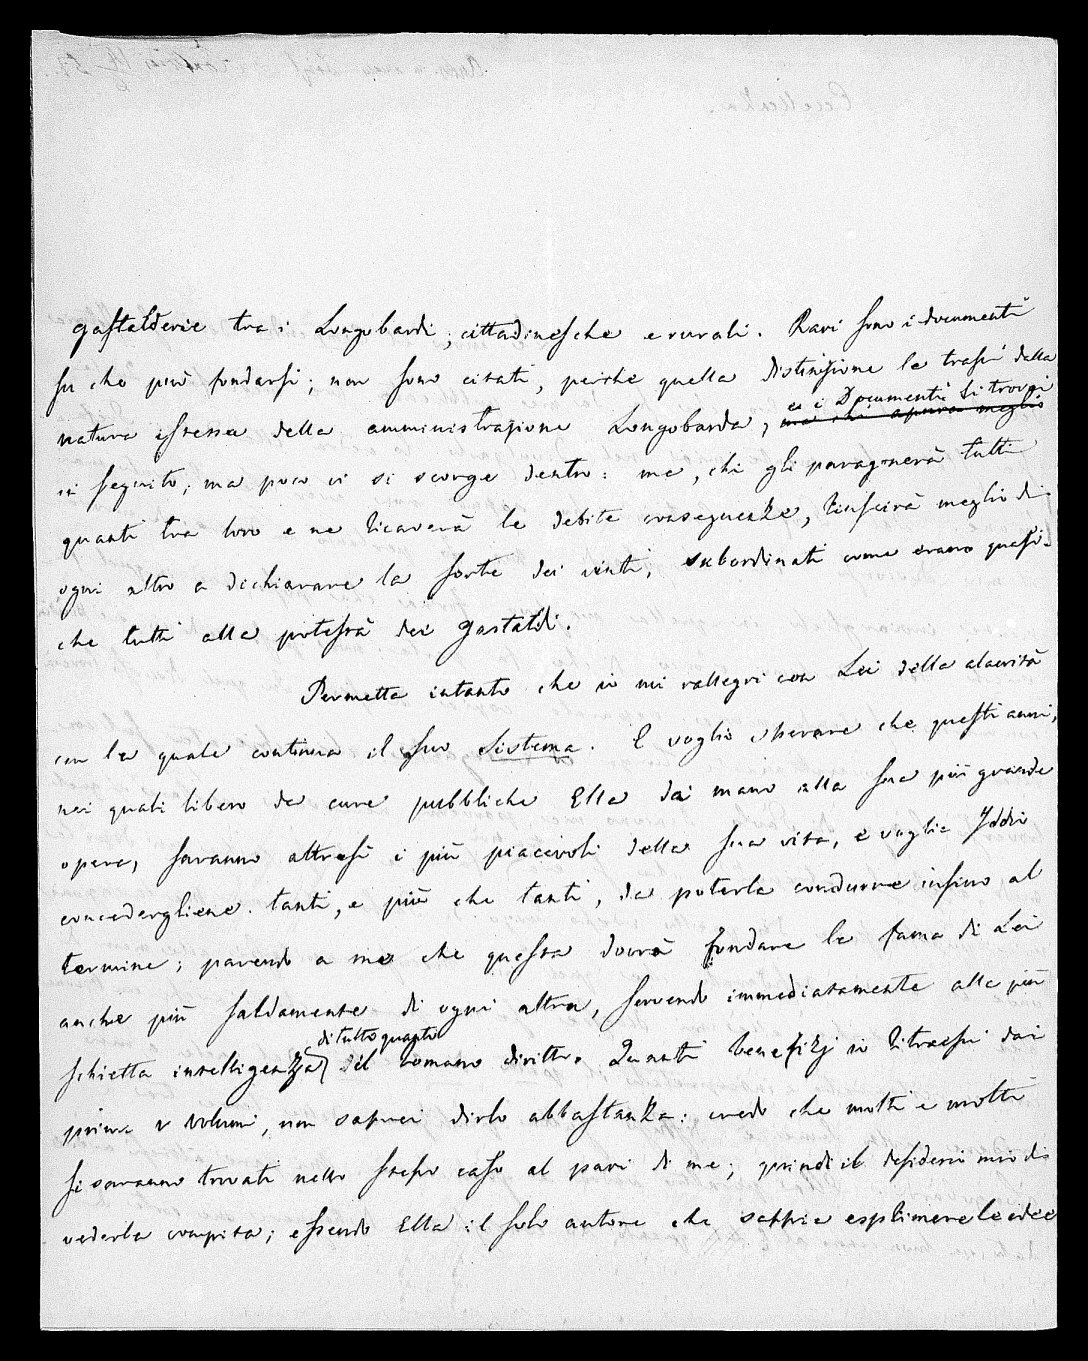 gastalderie tra i Longobardi, cittadinesche e rurali. Rari sono i documenti
su che può fondarsi; non sono citati, perchè quella distinzione la trassi dalla
natura istessa della amministrazione Longobarda, ma chi apura meglio
ei i Documenti li trovai
in seguito; ma poco vi si scorge dentro: ma, chi gli paragonerà tutti
quanti tra loro e ne ricaverà le debite conseguenze, riuscirà meglio di
ogni altro a dichiarare la sorte dei vinti, subordinati come erano quasi-
che tutti alla potestà dei Gastaldi.
Permetta intanto che io mi rallegri con Lei della alacrità
con la quale continua il suo Sistema. E voglio sperare che questi anni,
nei quali libero da cure pubbliche Ella dà mano alla sua più grande
opera, saranno altresì i più piacevoli della sua vita, e voglia Iddio
concedergliene tanti, e più che tanti, da poterla condurre infino al
termine; parendo a me che questa dovrà fondare la fama di Lei
anche più saldamente di ogni altra, servendo immediatamente alla più
di tutto quanto
schietta intelligenza del romano diritto. Quanti benefizj io ritraessi dai
primi V volumi, non saprei dirlo abbastanza: credo che molti e molti
si saranno trovati nello stesso caso al pari di me; quindi il desiderio mio di
vederla compita; essendo Ella il solo autore che sappia esplimere le idee